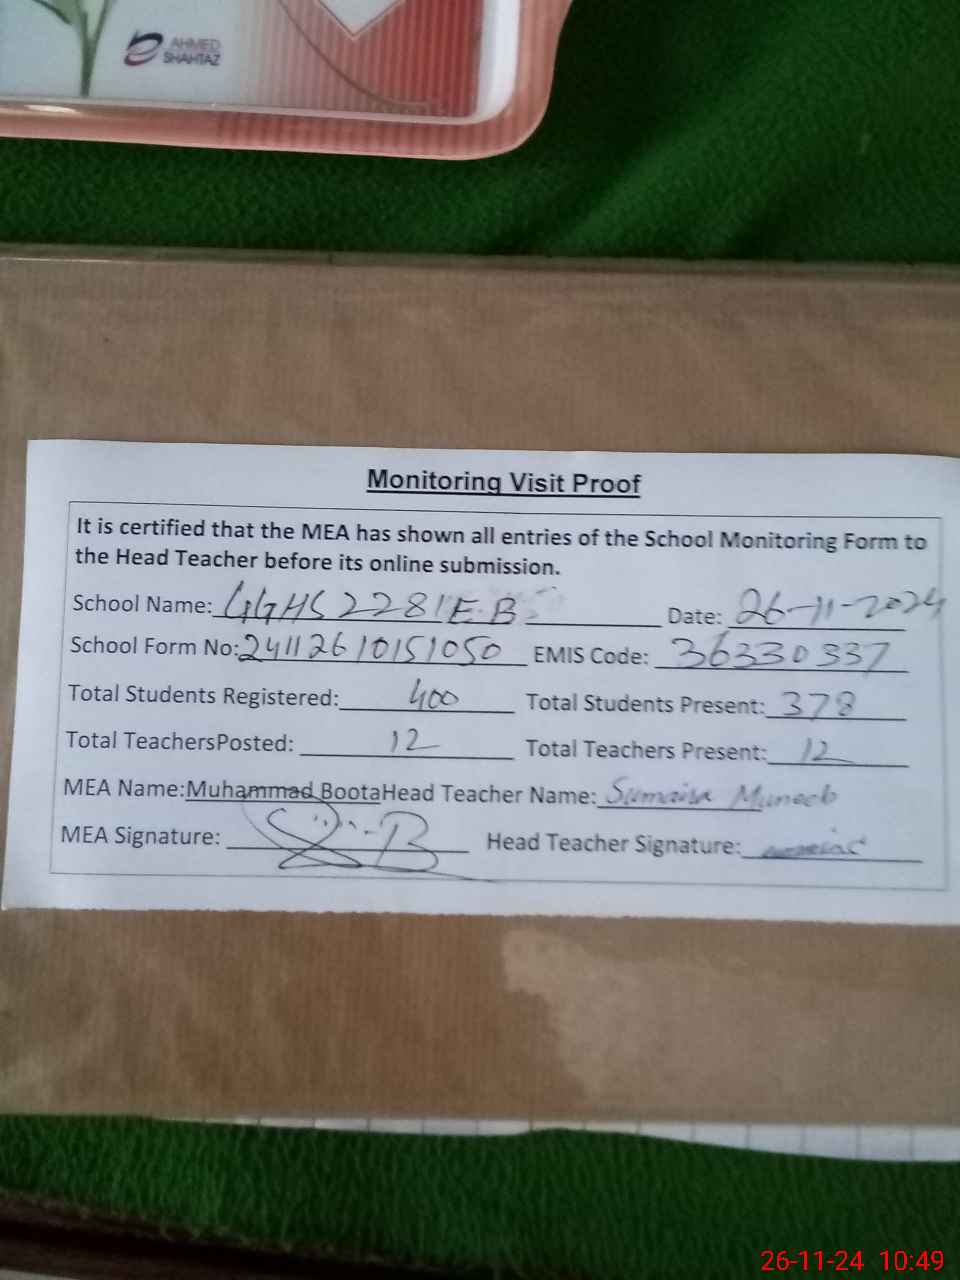 AHMED
SHAHTAZ
Monitoring Visit Proof
It is certified that the MEA has shown all entries of the School Monitoring Form to
the Head Teacher before its online submission.
School Name: GGHS 228/E.B. Date: 26-11-2024
School Form No: 24112610151050 EMIS Code: 36330337
Total Students Registered: 400 Total Students Present: 378
Total TeachersPosted: 12 Total Teachers Present: 12
MEA Name:Muhammad BootaHead Teacher Name: Sumaira Muneeb
MEA Signature: Head Teacher Signature:
26-11-24 10:49